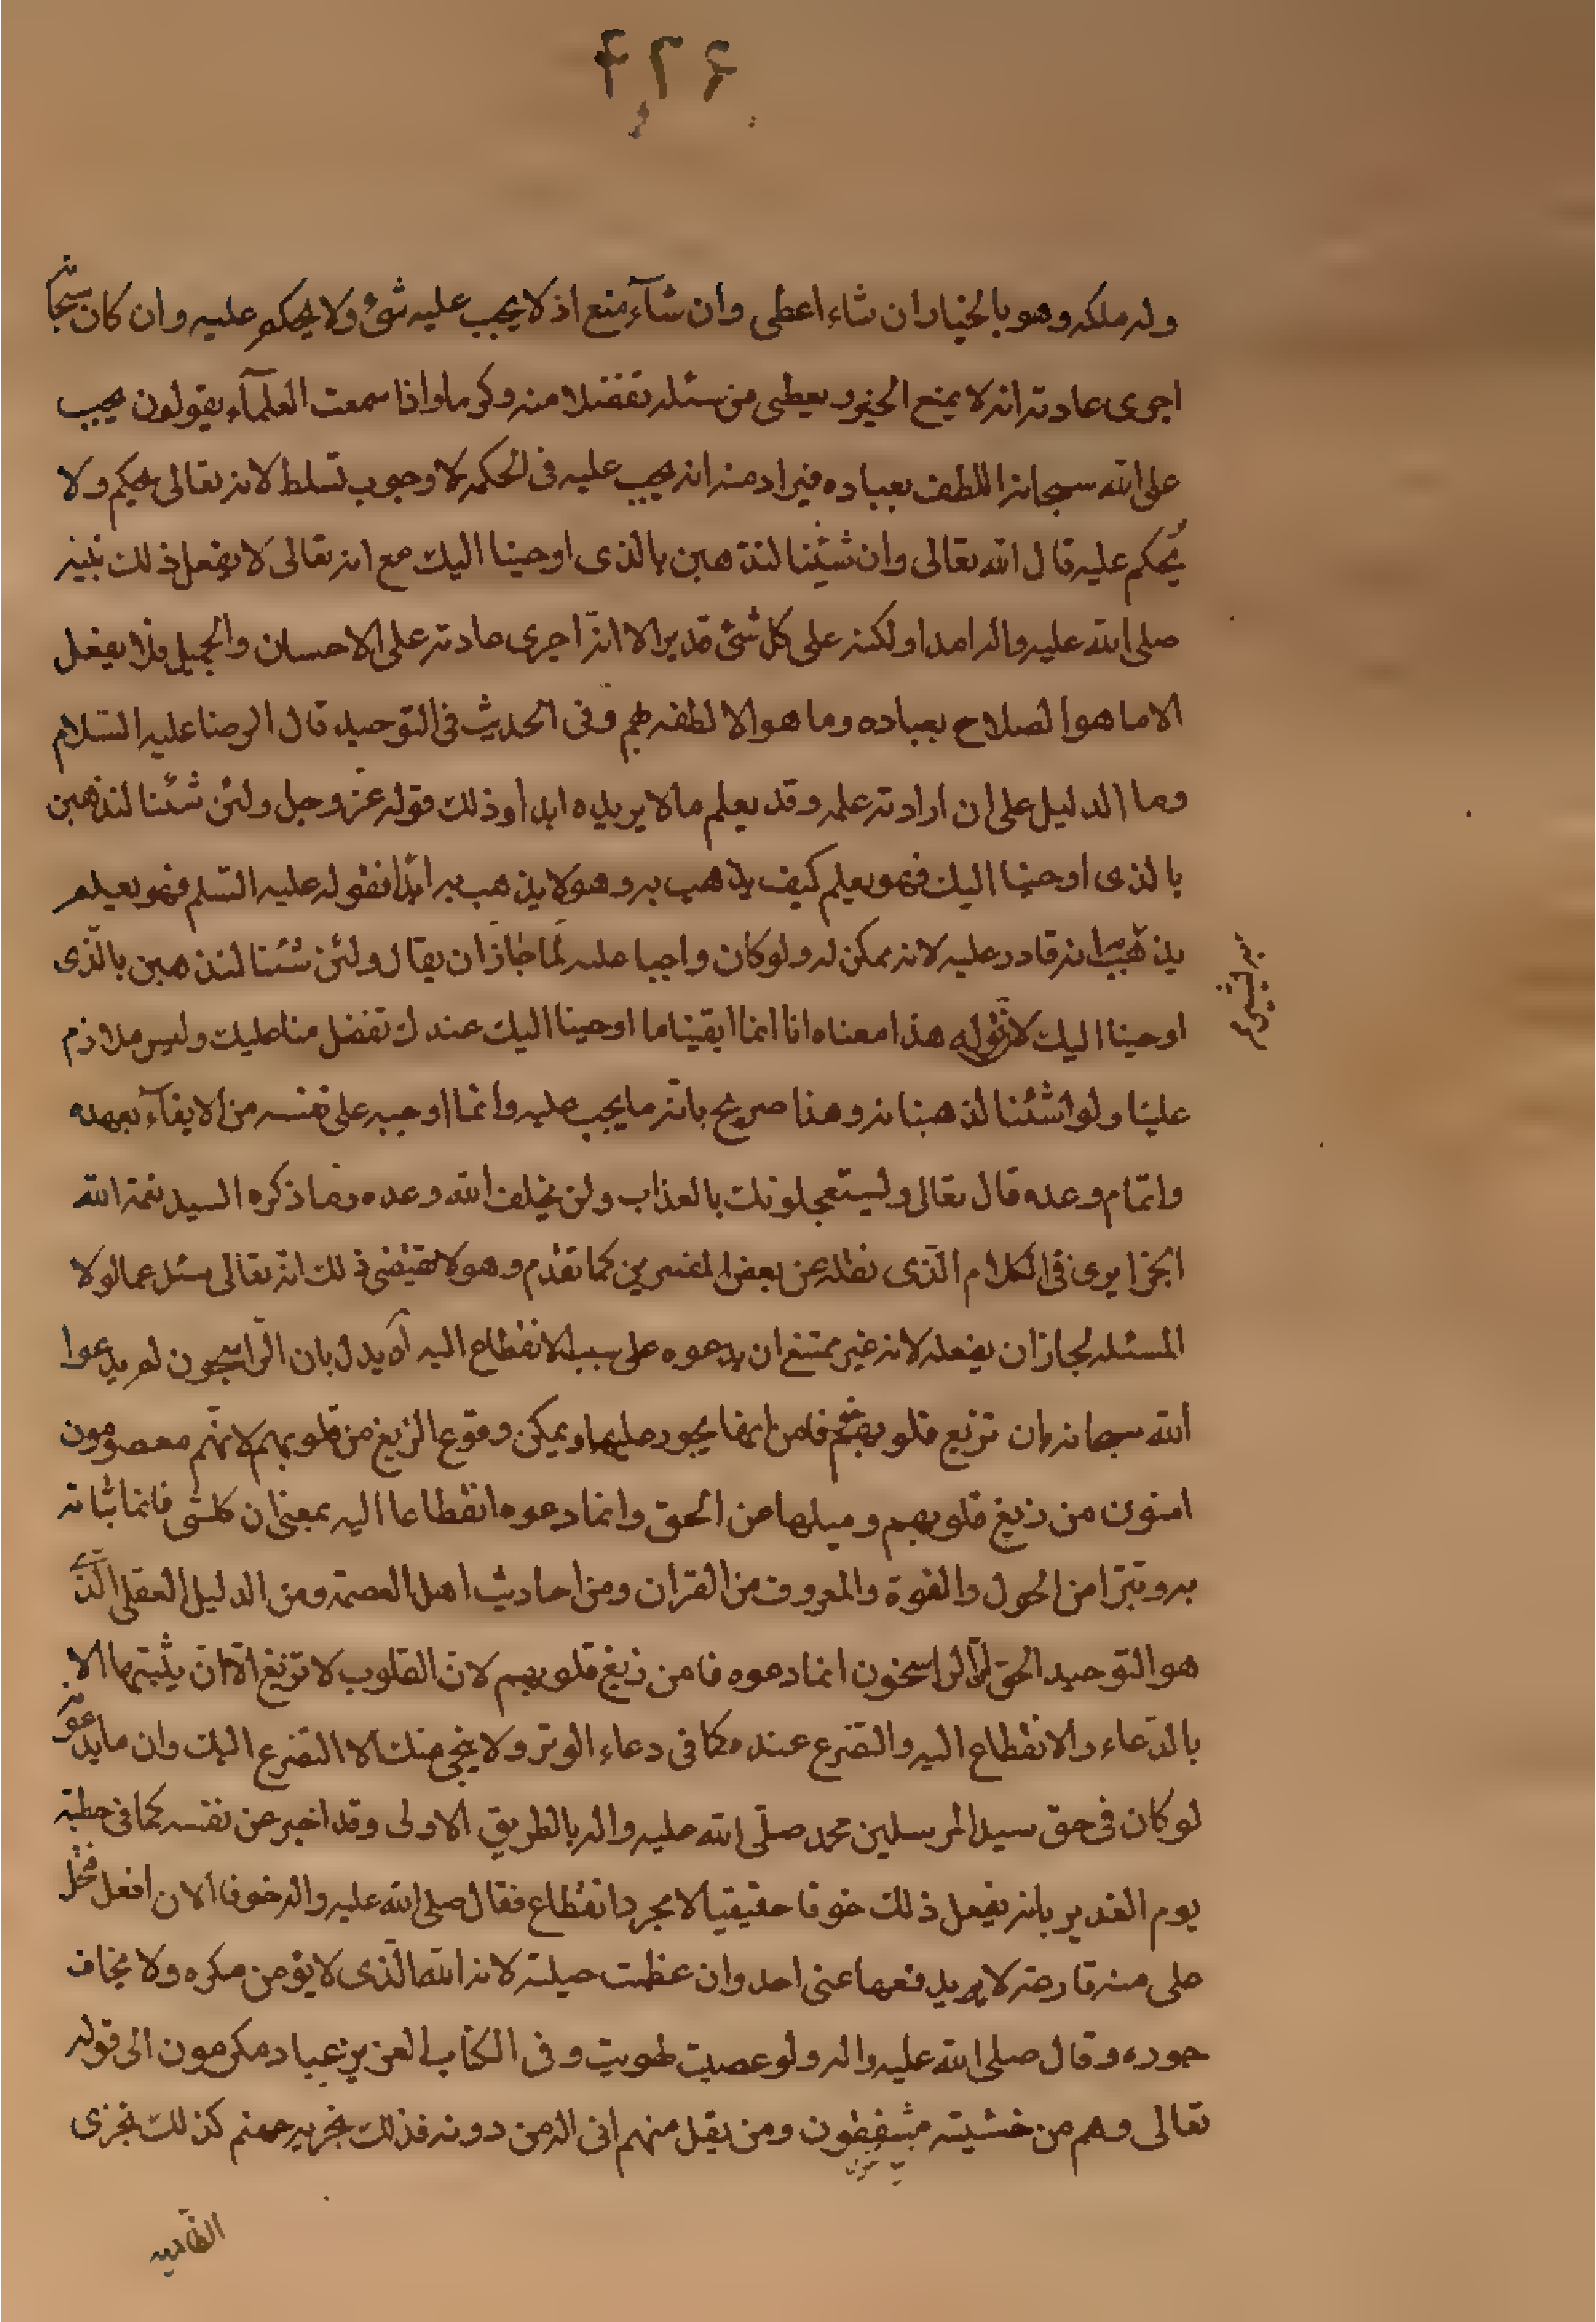 ۴۲۶
وله ملكه وهو بالخيار ان شاء اعطى وان شآء منع اذ لا يجب عليه شئ ولا يحكم عليه وان كان سبحانه
اجرى عادته انه لا يمنع الخير ويعطى من سئله تفضلا منه وكرما واذا سمعت العلمآء يقولون يجب
على الله سبحانه اللطف بعباده فيراد منه انه يجب عليه فى الحكمه لا وجوب تسلط لانه تعالى يحكم ولا
يحكم عليه قال الله تعالى وان شئنا لنذهبن بالذى اوحينا اليك مع انه تعالى لا يفعل ذلك بنبيه
صلى الله عليه واله ابدا ولكنه على كل شئ قدير الا انه اجرى عادته على الاحسان والجميل فلا يفعل
الا ما هو الصلاح بعباده وما هو الا لطفه بهم وفى الحديث فى التوحيد قال الرضا عليه السلام
وما الدليل على ان ارادته علمه وقد يعلم ما لا يريده ابدا وذلك قوله عز وجل ولئن شئنا لنذهبن
بالذى اوحينا اليك فهو يعلم كيف يذهب به وهو لا يذهب به ابدا فقوله عليه السلم فهو يعلم
يذهب به انه قادر عليه لانه يمكن له ولو كان واجبا عليه لما جاز ان يقال ولئن شئنا لنذهبن بالذى
اوحينا اليك لان قوله هذا معناه انا انما ابقينا ما اوحينا اليك عندك تفضل منا عليك وليس ملازم
علينا ولو شئنا لذهبنا به وهذا صريح بانه ما يجب عليه وانما اوجبه على نفسه من الايفآء بعهده
واتمام وعده قال تعالى وليستعجلونك بالعذاب ولن يخلف الله وعده وما ذكره السيد نعمة الله
الجزايرى فى الكلام الذى نقله عن بعض المفسرين كما تقدم وهو لا يقتضى ذلك انه تعالى سئل عما لولا
المسئله لجاز ان يفعله لانه غير ممتنع ان يدعوه على سبيل الانقطاع اليه آه يدل بان الراسخون لم يدعوا
الله سبحانه بان تزيغ قلوبهم فامن انها يجوز عليها ويمكن وقوع الزيغ من قلوبهم لانهم معصومون
امنون من زيغ قلوبهم وميلها عن الحق وانما دعوه انقطاعا اليه بمعنى ان كلشى فانما ثباته
به وتبرا من الحول والقوة والمعروف من القران ومن احاديث اهل العصمة ومن الدليل العقلى الذى
هو التوحيد الحق ان الراسخون انما دعوه فامن زيغ قلوبهم لان القلوب لا تزيغ الا ان يثبتها الا
بالدعاء والانقطاع اليه والتضرع عنده كما فى دعاء الوتر ولا ينجى منك الا التضرع اليك وان ما يدعو
لو كان فى حق سيد المرسلين محمد صلى الله عليه واله بالطريق الاولى وقد اخبر عن نفسه كما فى خطبة
يوم الغدير بانه يفعل ذلك خوفا حقيقيا لا مجرد انقطاع فقال صلى الله عليه واله خوفا الا ان افعل فتحل
على منه قارعة لا يريد فعها عنى احد وان عظمت حيلته لانه الله الذى لا يؤمن مكره ولا يخاف
جوره وقال صلى الله عليه واله ولو عصيت لهويت وفى الكتاب العزيز عباد مكرمون الى قوله
تعالى وهم من خشيته مشفقون ومن يقل منهم انى اله من دونه فذلك نجزيه جهنم كذلك نجزى
الظالمين